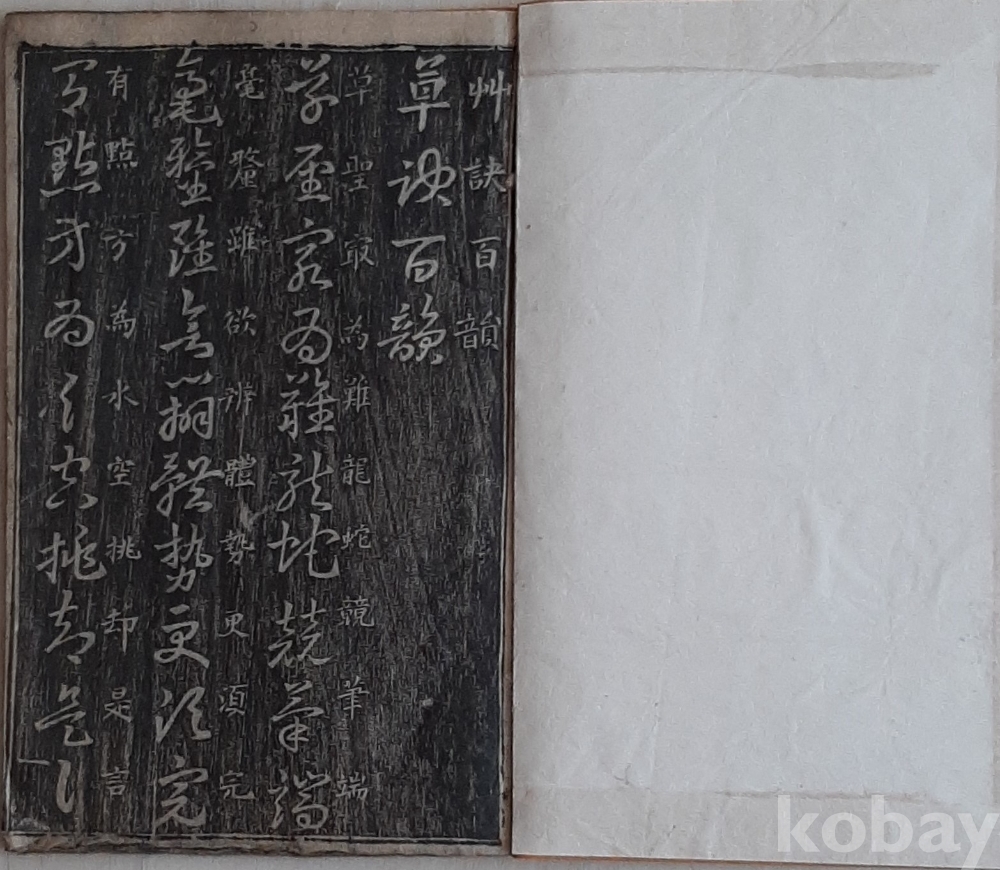 艸訣百韻
草訣百韻
草聖㝡為難龍蛇競筆端
草聖㝡為難龍蛇競筆端
毫釐雖欲辨體勢更須完
毫釐雖欲辨體勢更須完
有點方為水空挑却是言
有點方為水空挑却是言
kobay